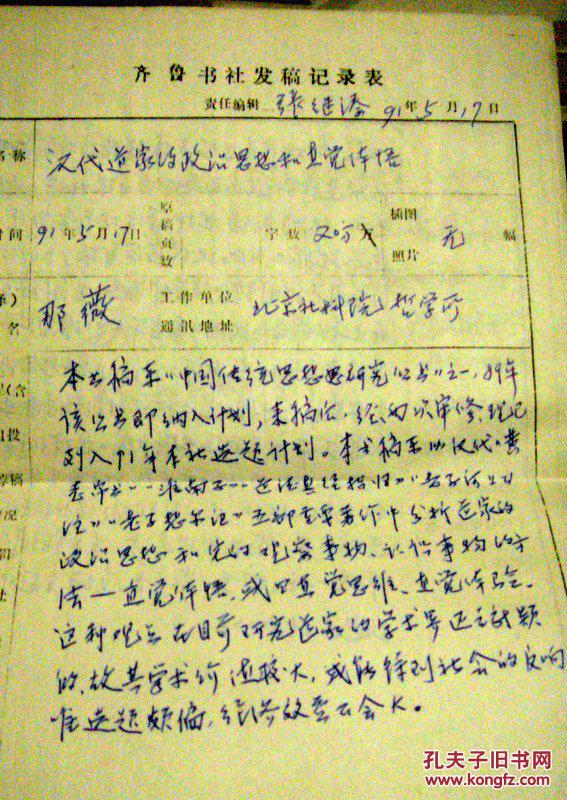 齐鲁书社发稿记录表
责任编辑 张继 91年5月17日
名称 汉代道家的政治思想和直觉体悟
时间 91年5月17日 原稿页数 字数 20万 插图照片 无 幅
名 那薇 工作单位通讯地址 北京社科院哲学所
(含 本书稿系“中国传统思想研究丛书”之一，89年
该丛书即纳入计划，来稿后，经两次审修，现已
投 列入91年本社选题计划。本书稿系以汉代《黄
稿 老帛书》《淮南子》《道德真经指归》《老子河上
况 注》《老子想尔注》五部重要著作中分析道家的
政治思想和它的观察事物、认识事物的方
法—直觉体悟，或曰直觉思维、直觉体验。
这种观点在目前研究道家的学术界还是新颖
的，故其学术价值较大，或能得到社会的反响
惟选题颇偏，经济效益不会大。
孔夫子旧书网
www.kongfz.com